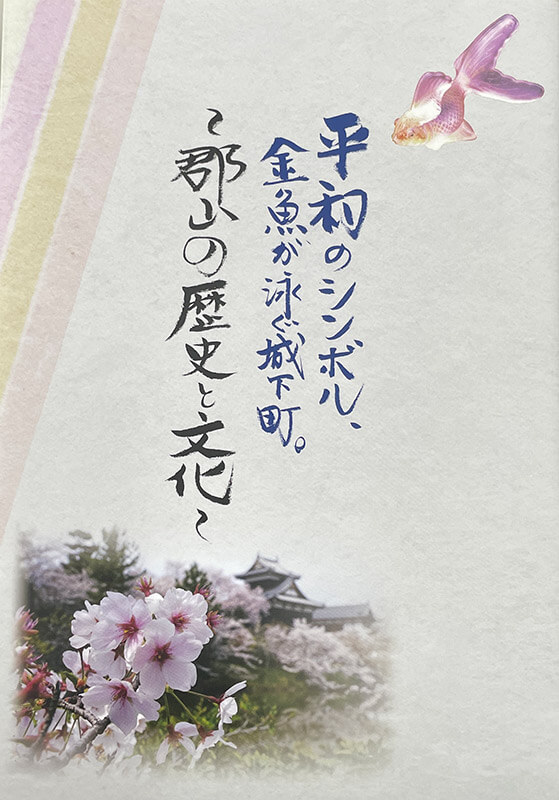 平和のシンボル、
金魚が泳ぐ城下町。
～郡山の歴史と文化～